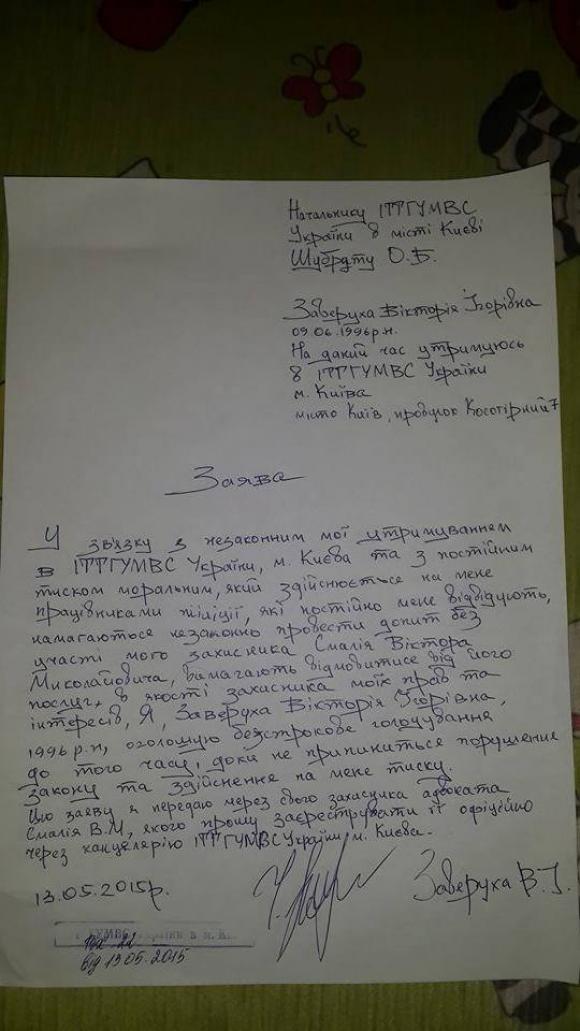 Начальнику ІТТГУМВС
України в місті Києві
Шубруту О.Б.
Заверуха Вікторія Ігорівна
09.06.1996р.н.
На даний час утримуюсь
в ІТТГУМВС України
м. Київа
місто Київ, провулок Косогірний 7
Заява
У зв'язку з незаконним мої утримуванням
в ІТТГУМВС України, м. Києва та з постійним
тиском моральним, який здійснюється на мене
працівниками міліції, які постійно мене відвідують,
намагаються незаконно провести допит без
участі мого захисника Смалія Віктора
Миколайовича, вимагають відмовитисе від його
послуг, в якості захисника моїх прав та
інтересів, Я, Заверуха Вікторія Ігорівна,
1996 р.н, оголошую безстрокове голодування
до того часу, доки не припиниться порушення
закону та здійснення на мене тиску.
Цю заяву я передаю через свого захисника адвоката
Смалія В.М, якого прошу заєреструвати її офіційно
через канцелярію ІТТГУМВС України м. Києва.
13.05.2015р.
Заверуха В.І.
ГУМВС України в м.
від 13.05.2015